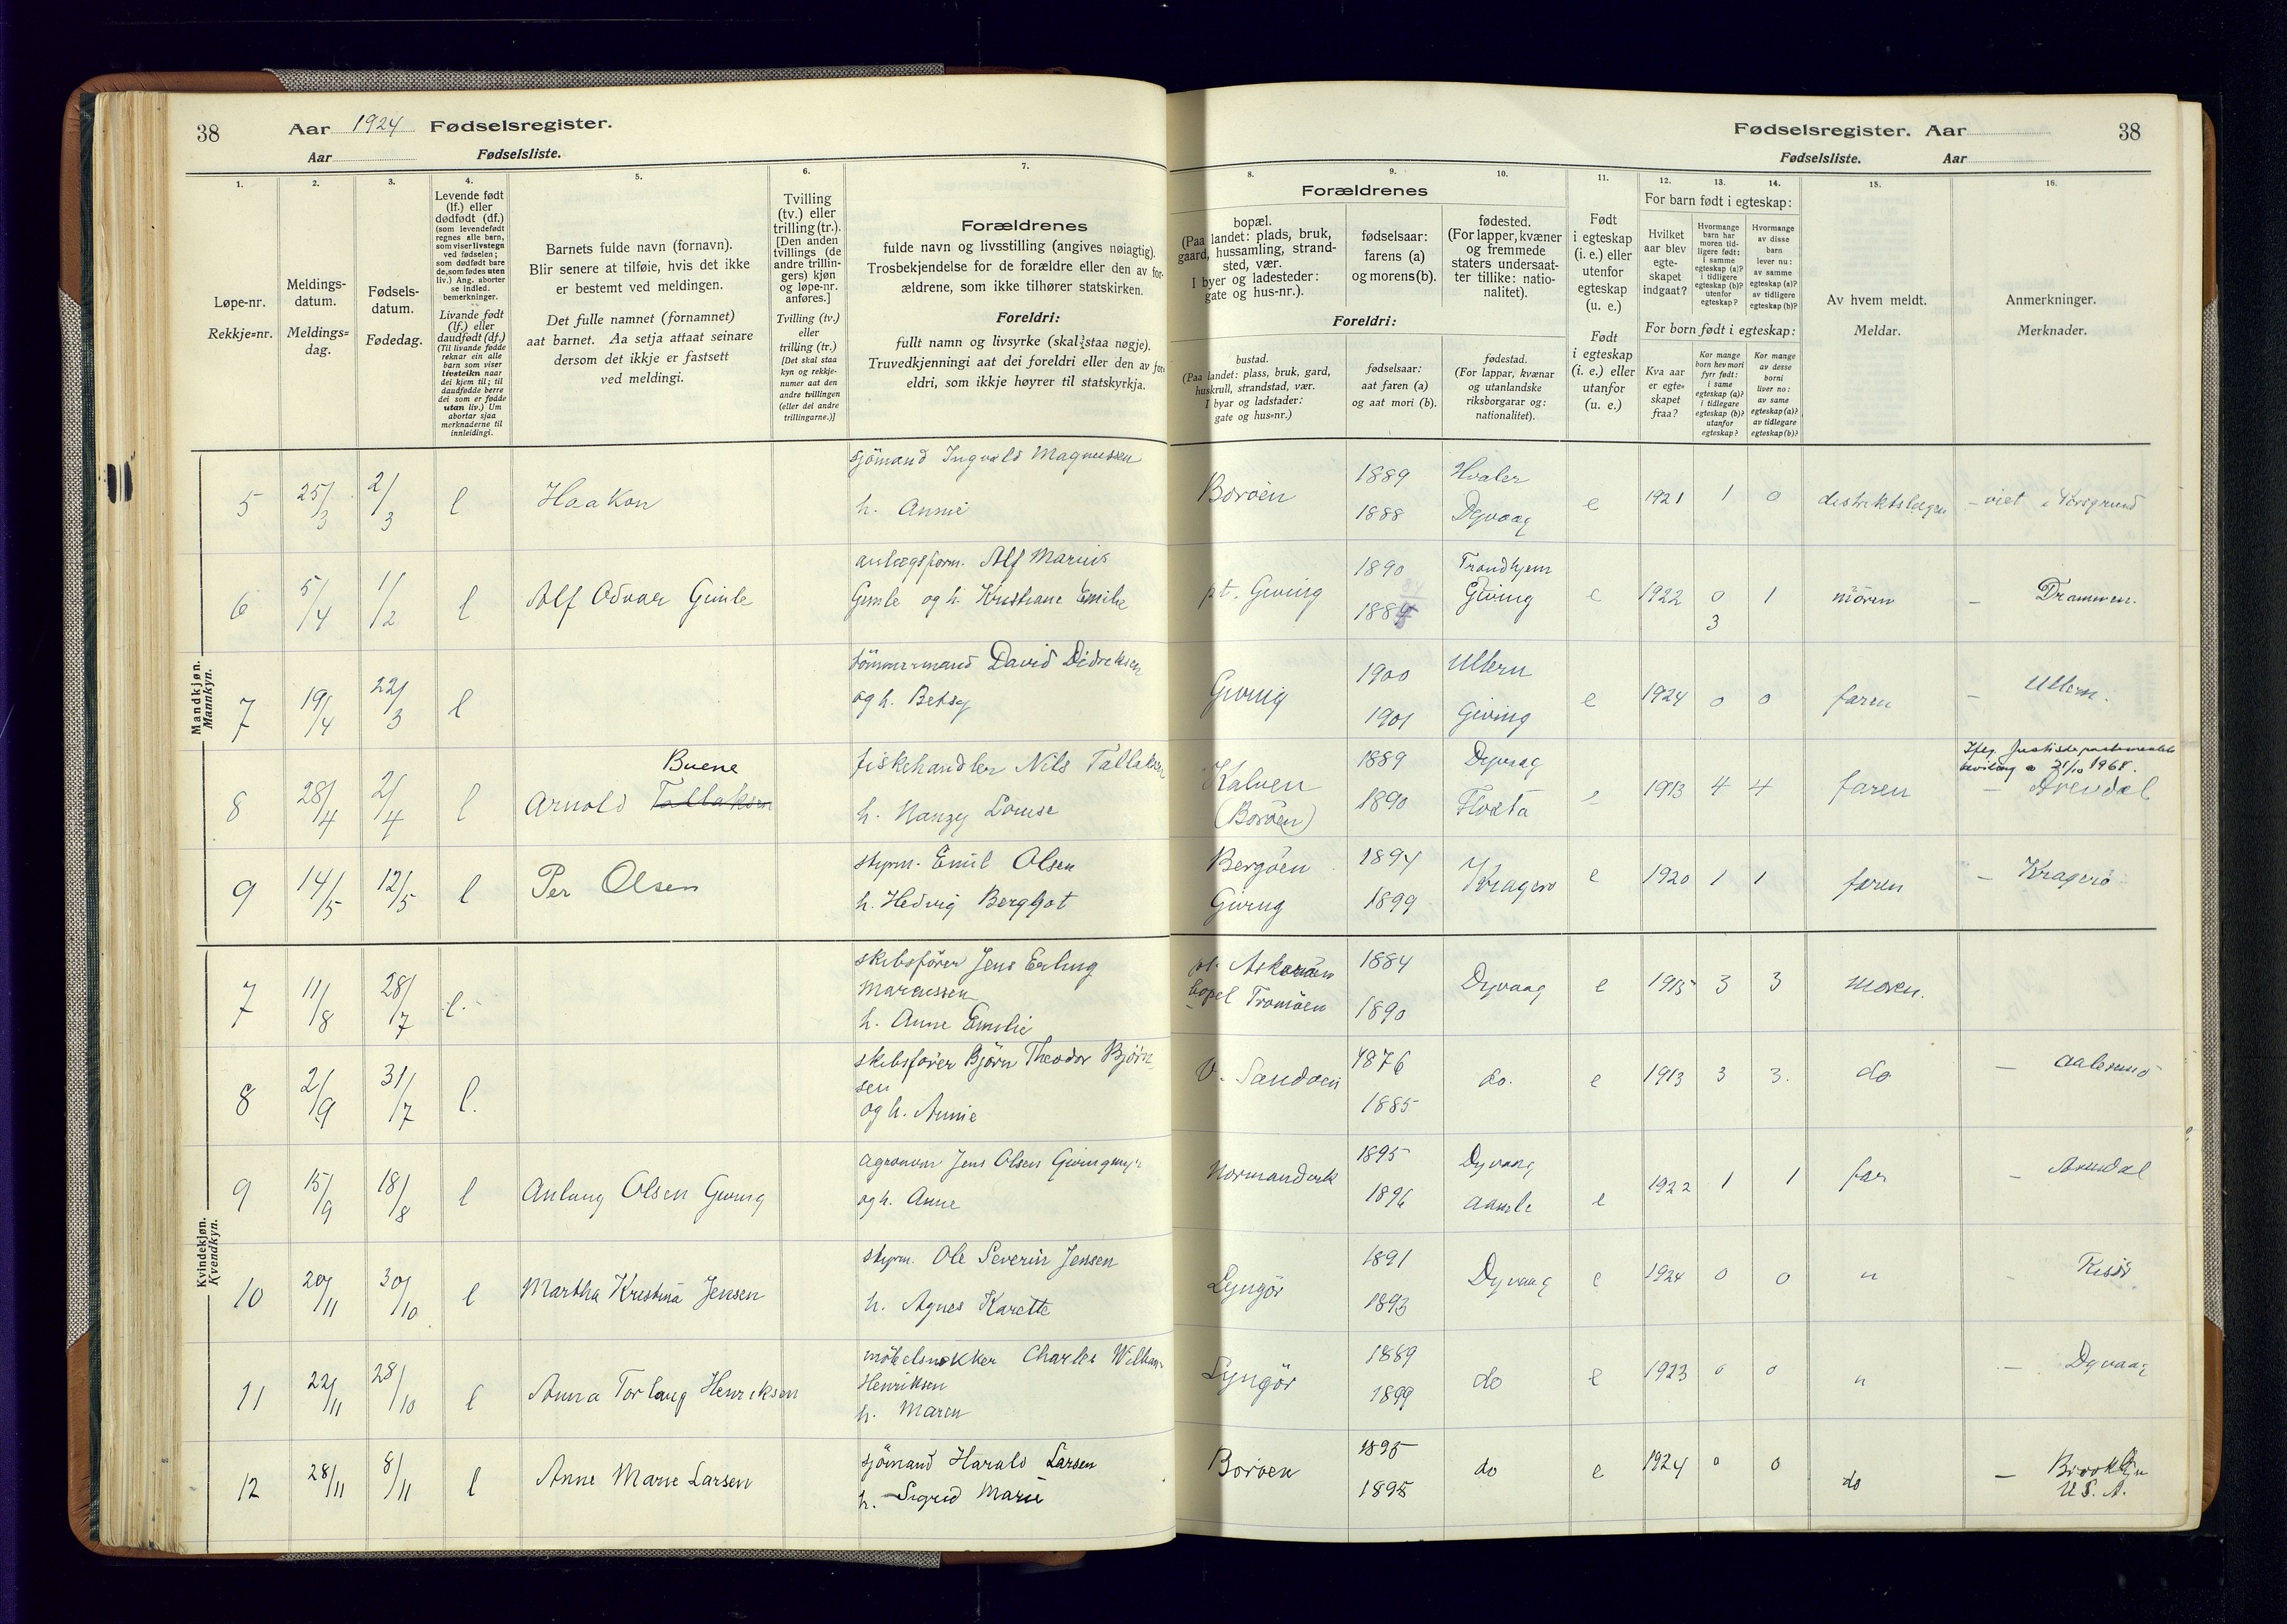 38
Aar 1924 Fødselsregister.
Aar Fødselsliste.
Fødselsregister. Aar
Fødselsliste. Aar
38
1.
Løpe-nr.
Rekkje=nr.
2.
Meldings-
datum.
Meldings=
dag.
3.
Fødsels-
datum.
Fødedag.
4.
Levende født
(lf.) eller
dødfødt (df.)
(som levendefødt
regnes alle barn,
som viser livstegn
ved fødselen;
som dødfødt bare
de, som fødes uten
liv.) Ang. aborter
se indled.
bemerkninger.
Livande født
(lf.) eller
daudfødt (df.)
(Til livande fødde
reknar ein alle
barn som viser
livsteikn naar
dei kjem til; til
daudfødde berre
dei som er fødde
utan liv.) Um
abortar sjaa
merknaderne til
innleidingi.
5.
Barnets fulde navn (fornavn).
Blir senere at tilføie, hvis det ikke
er bestemt ved meldingen.
Det fulle namnet (fornamnet)
aat barnet. Aa setja attaat seinare
dersom det ikkje er fastsett
ved meldingi.
6.
Tvilling
(tv.) eller
trilling (tr.).
[Den anden
tvillings (de
andre trillin-
gers) kjøn
og løpe-nr.
anføres.]
Tvilling (tv.)
eller
trilling (tr.)
[Det skal staa
kyn og rekkje-
numer aat den
andre tvillingen
(eller dei andre
trillingarne.)]
7.
Forældrenes
fulde navn og livsstilling (angives nøiagtig).
Trosbekjendelse for de forældre eller den av for-
ældrene, som ikke tilhører statskirken.
Foreldri:
fullt namn og livsyrke (skal staa nøgje).
Truvedkjenningi aat dei foreldri eller den av for-
eldri, som ikkje høyrer til statskyrkja.
8.
Forældrenes
bopæl.
(Paa landet: plads, bruk,
gaard, hussamling, strand-
sted, vær.
I byer og ladesteder:
gate og hus-nr.).
Foreldri:
bustad.
(Paa landet: plass, bruk, gard,
huskrull, strandstad, vær.
I byar og ladstader:
gate og hus=nr.)
9.
fødselsaar:
farens (a)
og morens (b).
fødselsaar:
aat faren (a)
og aat mori (b).
10.
fødested.
(For lapper, kvæner
og fremmede
staters undersaat-
ter tillike: natio-
nalitet).
fødestad.
(For lappar, kvænar
og utanlandske
riksborgarar og:
nationalitet).
11.
Født
i egteskap
(i. e.) eller
utenfor
egteskap
(u. e.)
Født
i egteskap
(i. e.) eller
utanfor
(u. e.)
12.
For barn født i egteskap:
Hvilket
aar blev
egte-
skapet
indgaat?
For born født i egteskap:
Kva aar
er egte-
skapet
fraa?
13.
Hvormange
barn har
moren tid-
ligere født:
i samme
egteskap (a)?
i tidligere
egteskap (b)?
utenfor
egteskap?
Kor mange
born hev mori
fyrr født:
i same
egteskap (a)?
i tidlegare
egteskap (b)?
utanfor
egteskap?
14.
Hvormange
av disse
barn
lever nu:
av samme
egteskap (a)?
av tidligere
egteskap (b)?
Kor mange
av desse
borni
liver no:
av same
egteskap (a)?
av tidlegare
egteskap (b)?
15.
Av hvem meldt.
Meldar.
16.
Anmerkninger.
Merknader.
Mandkjøn.
Mannkyn.
5 25/3 2/3 l Haakon
sjömand Ingvald Magnussen
h. Annie
Boröen 1889 1888 Hvaler Dyvaag e 1921 1 0 distriktslægen
6 5/4 1/2 l Alf Odvar Gimle
anlægsform. Alf Marius
Gimle og h. Kristiane Emilie
pt. Geving 1890 Trondhjem Giving e 1922 0 3 1 mören – Drammen.
7 19/4 22/3 l
tömmermand David Didreksen
og h. Betsy
Geving 1900 1901 Ullern Geving e 1924 0 0 faren – Ullern.
8 28/4 2/4 l Arnold Tallaksen Buene
fiskehandler Nils Tallaksen
h. Nanzy Louise
Kalven
(Boröen) 1889 1890 Dyvaag Flosta e 1913 4 4 faren
Ifig. Justisdepartementets
bevilling a 31/10 1968.
– Arendal
9 14/5 12/5 l Per Olsen
styrm. Emil Olsen
h. Hedvig Bergljot
Bergöen
Giving 1894 1899 Kragerø e 1920 1 1 faren – Kragerö
Kvindekjøn.
Kvendkyn.
7 11/8 28/7 l.
skibsförer Jens Erling
Marcussen
h. Anne Emilie
pt. Askerøen
bopel Tromöen 1884 1890 Dyvaag e 1915 3 3 moren.
8 2/9 31/7 l.
skibsförer Björn Theodor Björn-
sen
og h. Annie
V. Sandøen 1876 1885 do. e 1913 3 3. do – Aalesund
9 15/9 18/8 l Anlaug Olsen Geving
agronom Jens Olsen Gevingmyr
og h. Anne
Normandvik 1895 1896 Dyvaag Aamli e 1922 1 1 far – Arendal
10 20/11 30/10 l Martha Kristina Jensen
styrm. Ole Severin Jensen
h. Agnes Karette
Lyngör 1891 1893 Dyvaag e 1924 0 0 " – Risör
11 22/11 28/10 l Anna Torlaug Henriksen
möbelsnekker Charles William
Henriksen
h. Maren
Lyngör 1889 1899 do e 1923 0 0 " – Dyvaag
12 28/11 8/11 l Anne Marie Larsen
sjömand Harald Larsen
h. Sigrid Marie
Boröen 1895 1895 do e 1924 0 0 do – Brooklyn
U. S. A.